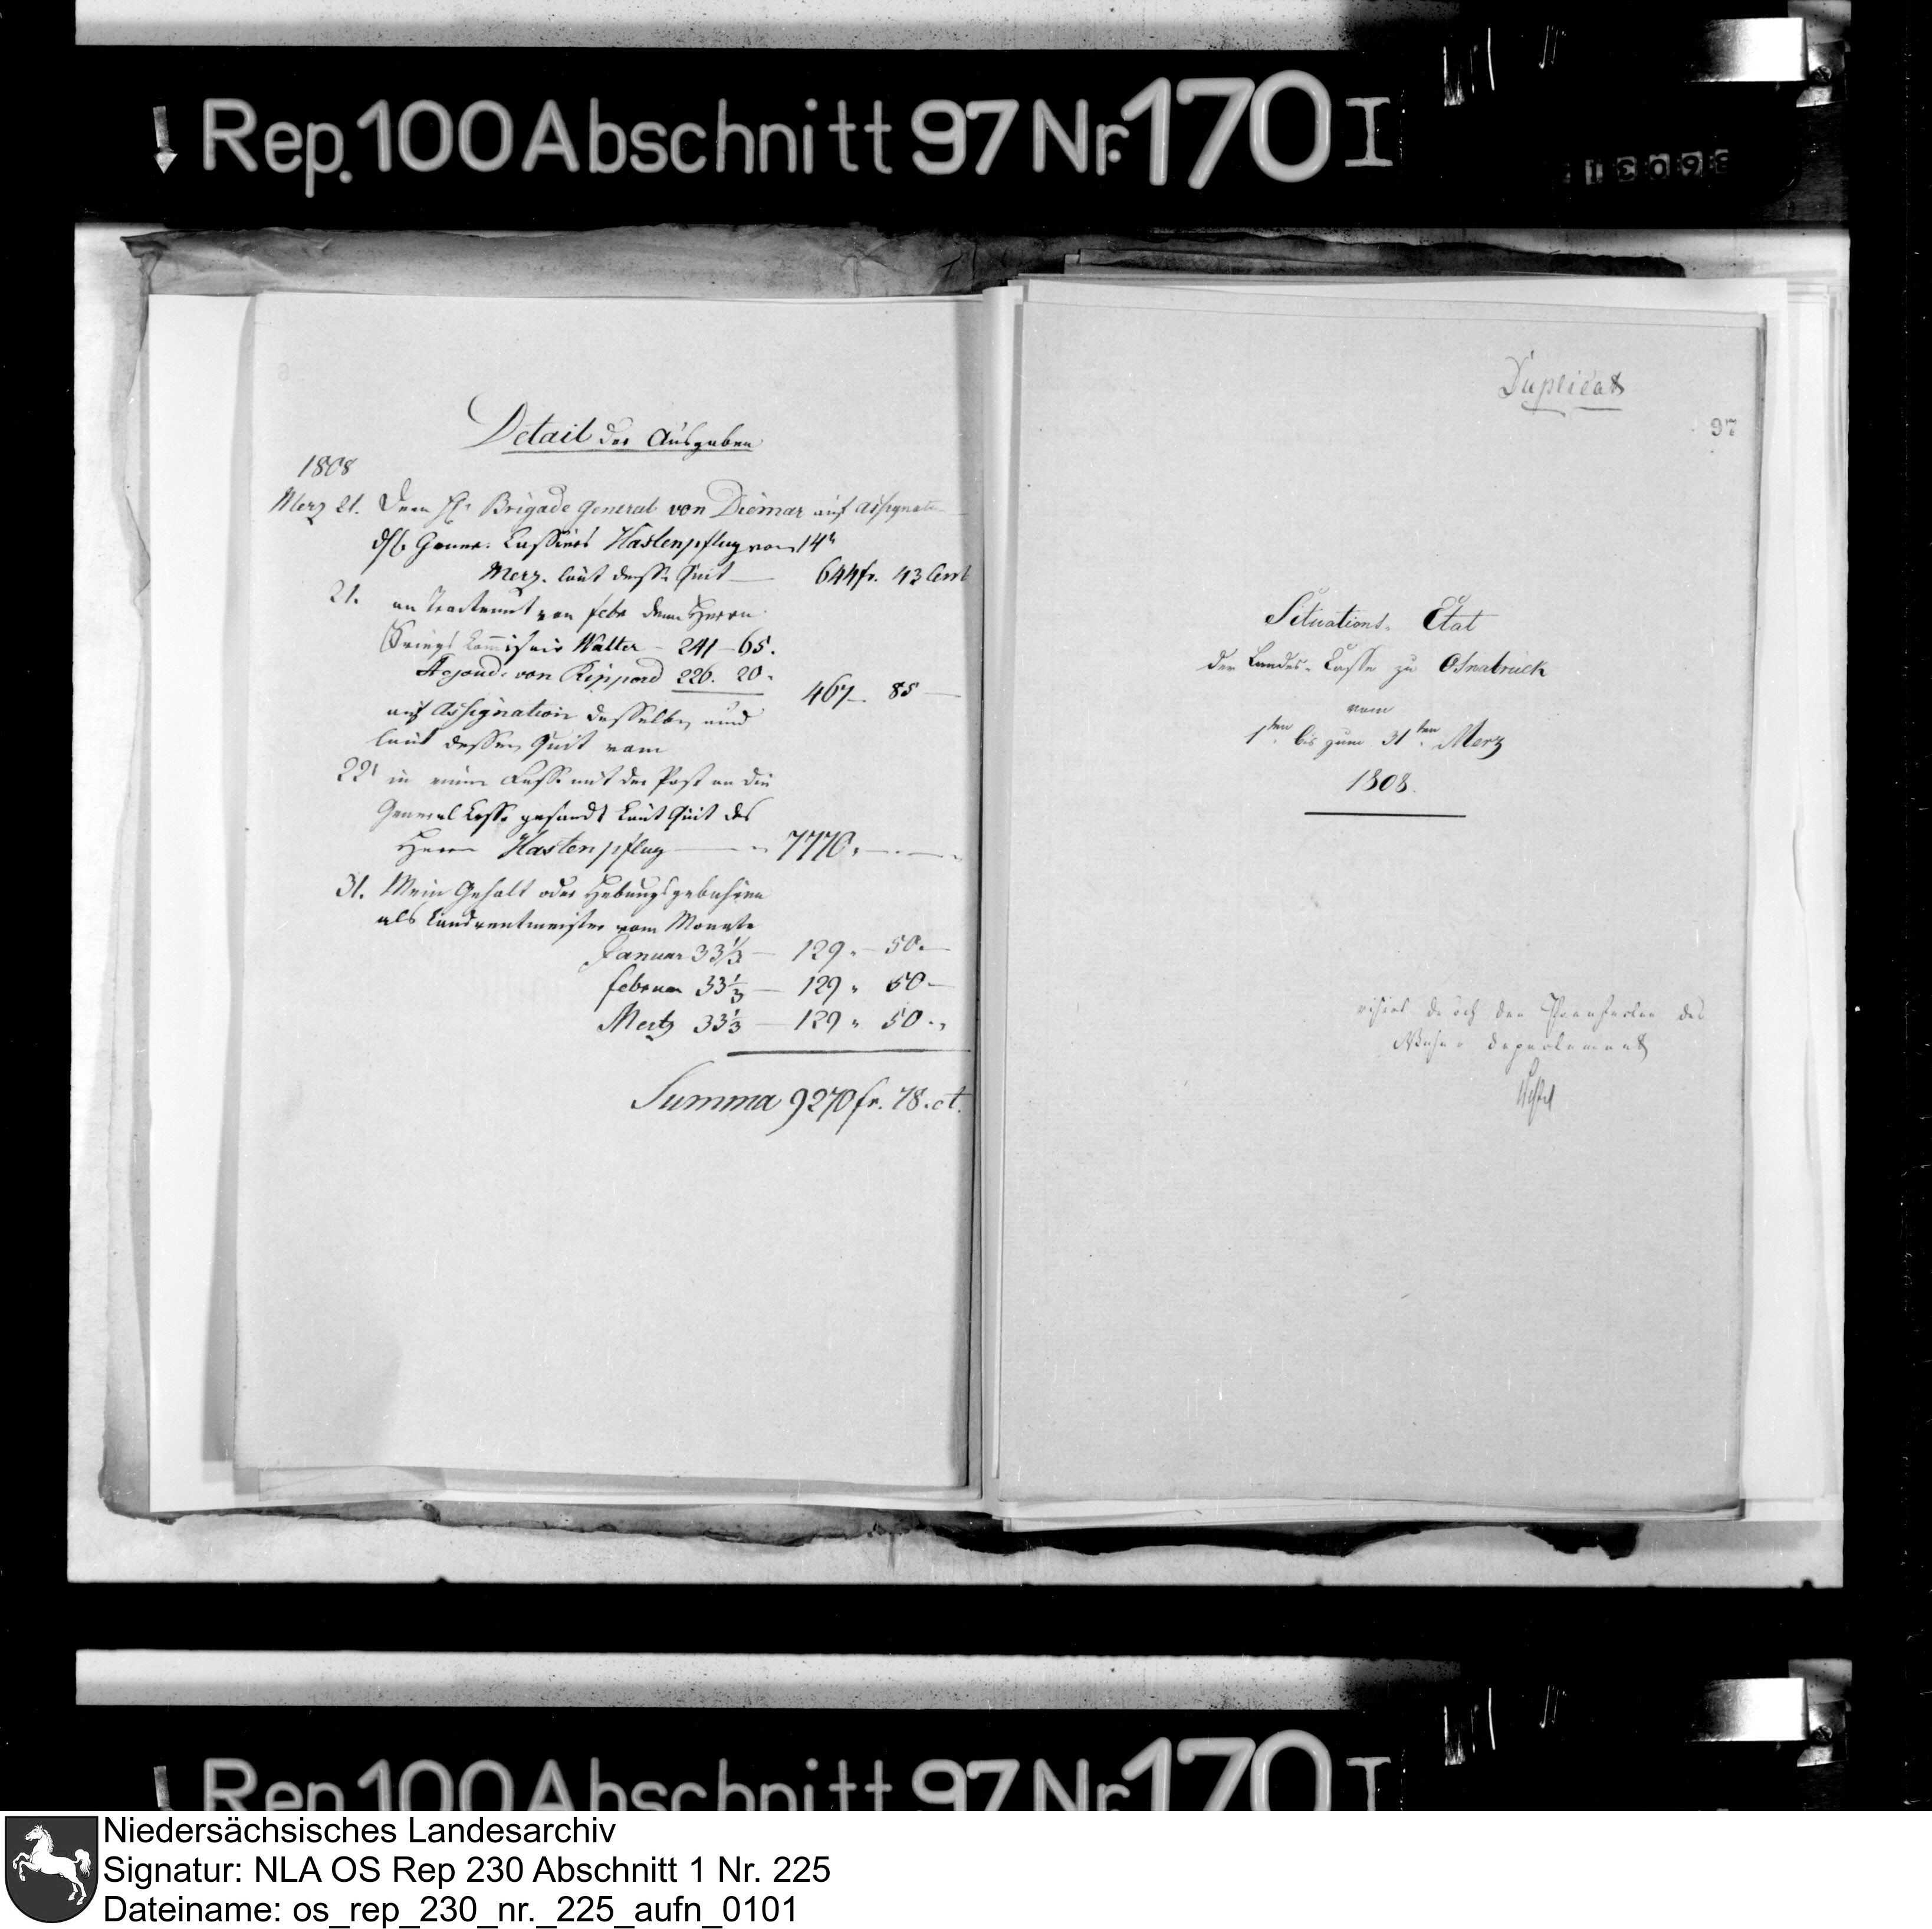 Rep. 100 Abschnitt 97 Nr. 170 I
Detail der Ausgaben
1808
Merz 21. Dem H. Brigade General von Diemar auf Assignation
Cassiers Hastenpflug vom 14t
Merz. laut dess. Quit — 644 fr. 43 Cent
21. an Tractement von febr dem Herrn
Kriegs Commissair Walter – 241 – 65.
von 226. 20.
467 – 85 —
auf Assignation desselben und
laut dessen Quit vom
22t in einem mit der Post an die
General Casse gesandt laut Quit des
Herrn Hastenpflug — 7770. —
31. Mein Gehalt oder Hebungsgebühren
als Landrentmeister vom Monate
Januar 33 1/3 — 129 „ — 50 —
februar 33 1/3 — 129 „ 50 —
Mertz 33 1/3 — 129 „ 50 „
Summa 9270 fr. 78. ct.
Duplicat
97
Situations. Etat
der Landes-Casse zu Osnabruck
vom
1ten bis zum 31ten Merz
1808.
durch den des
departement
Rep. 100 Abschnitt 97 Nr. 170 I
Niedersächsisches Landesarchiv
Signatur: NLA OS Rep 230 Abschnitt 1 Nr. 225
Dateiname: os_rep_230_nr._225_aufn_0101